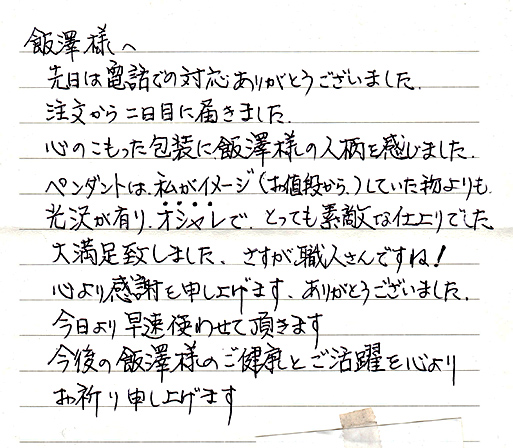 飯澤様へ
先日は電話での対応ありがとうございました.
注文から二日目に届きました.
心のこもった包装に飯澤様の人柄を感じました.
ペンダントは、私がイメージ(お値段から.)していた物よりも
光沢が有り、オシャレで、とっても素敵な仕上りでした
大満足致しました、さすが職人さんですね!
心より感謝を申し上げます、ありがとうございました.
今日より早速使わせて頂きます
今後の飯澤様のご健康とご活躍を心より
お祈り申し上げます